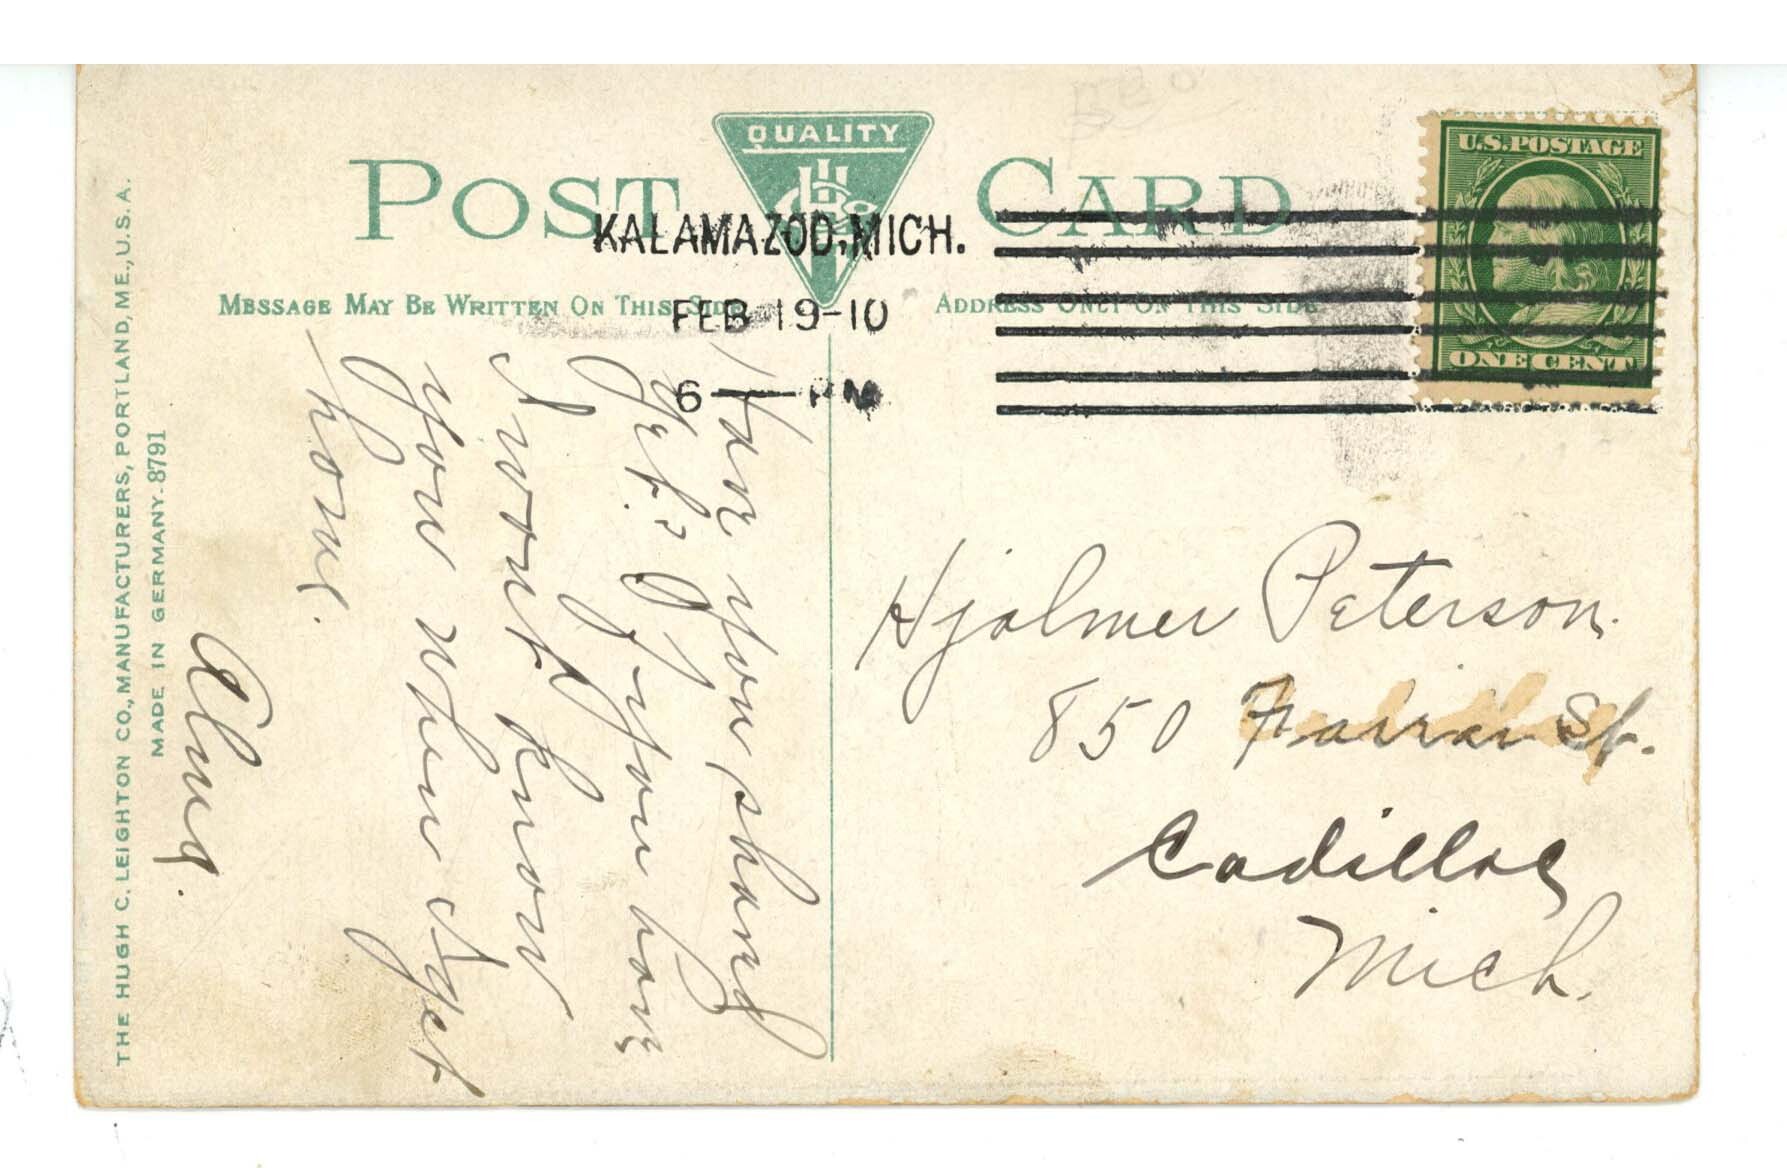 POST CARD
QUALITY
U.S. POSTAGE
ONE CENT
KALAMAZOO, MICH.
FEB 19-10
6 — PM
MESSAGE MAY BE WRITTEN ON THIS SIDE
ADDRESS ONLY ON THIS SIDE
Have you shaved
yet? If you have
I wont know
you when I get
home.
Alma.
Hjalmer Peterson.
850 Farrar St.
Cadillac
Mich.
THE HUGH C. LEIGHTON CO., MANUFACTURERS, PORTLAND, ME., U.S.A.
MADE IN GERMANY-8791